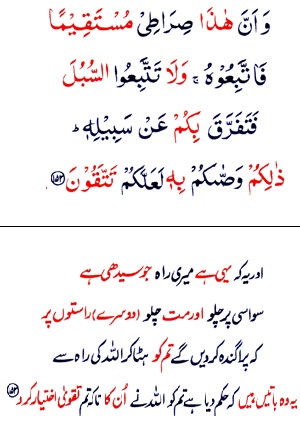 وَاَنَّ هٰذَا صِرَاطِیْ مُسْتَقِیْمًا
فَاتَّبِعُوْهُ ۚ وَلَا تَتَّبِعُوا السُّبُلَ
فَتَفَرَّقَ بِکُمْ عَنْ سَبِیْلِهٖ ؕ
ذٰلِکُمْ وَصّٰىکُمْ بِهٖ لَعَلَّکُمْ تَتَّقُوْنَ ﴿۱۵۳﴾
اور یہ کہ یہی ہے میری راہ جو سیدھی ہے
سو اسی پر چلو اور مت چلو (دوسرے) راستوں پر
کہ پراگندہ کردیں گے تم کو ہٹا کر اللہ کی راہ سے
یہ وہ باتیں ہیں کہ حکم دیا ہے تم کو اللہ نے اُن کا تاکہ تم تقویٰ اختیار کرو ﴿۱۵۳﴾